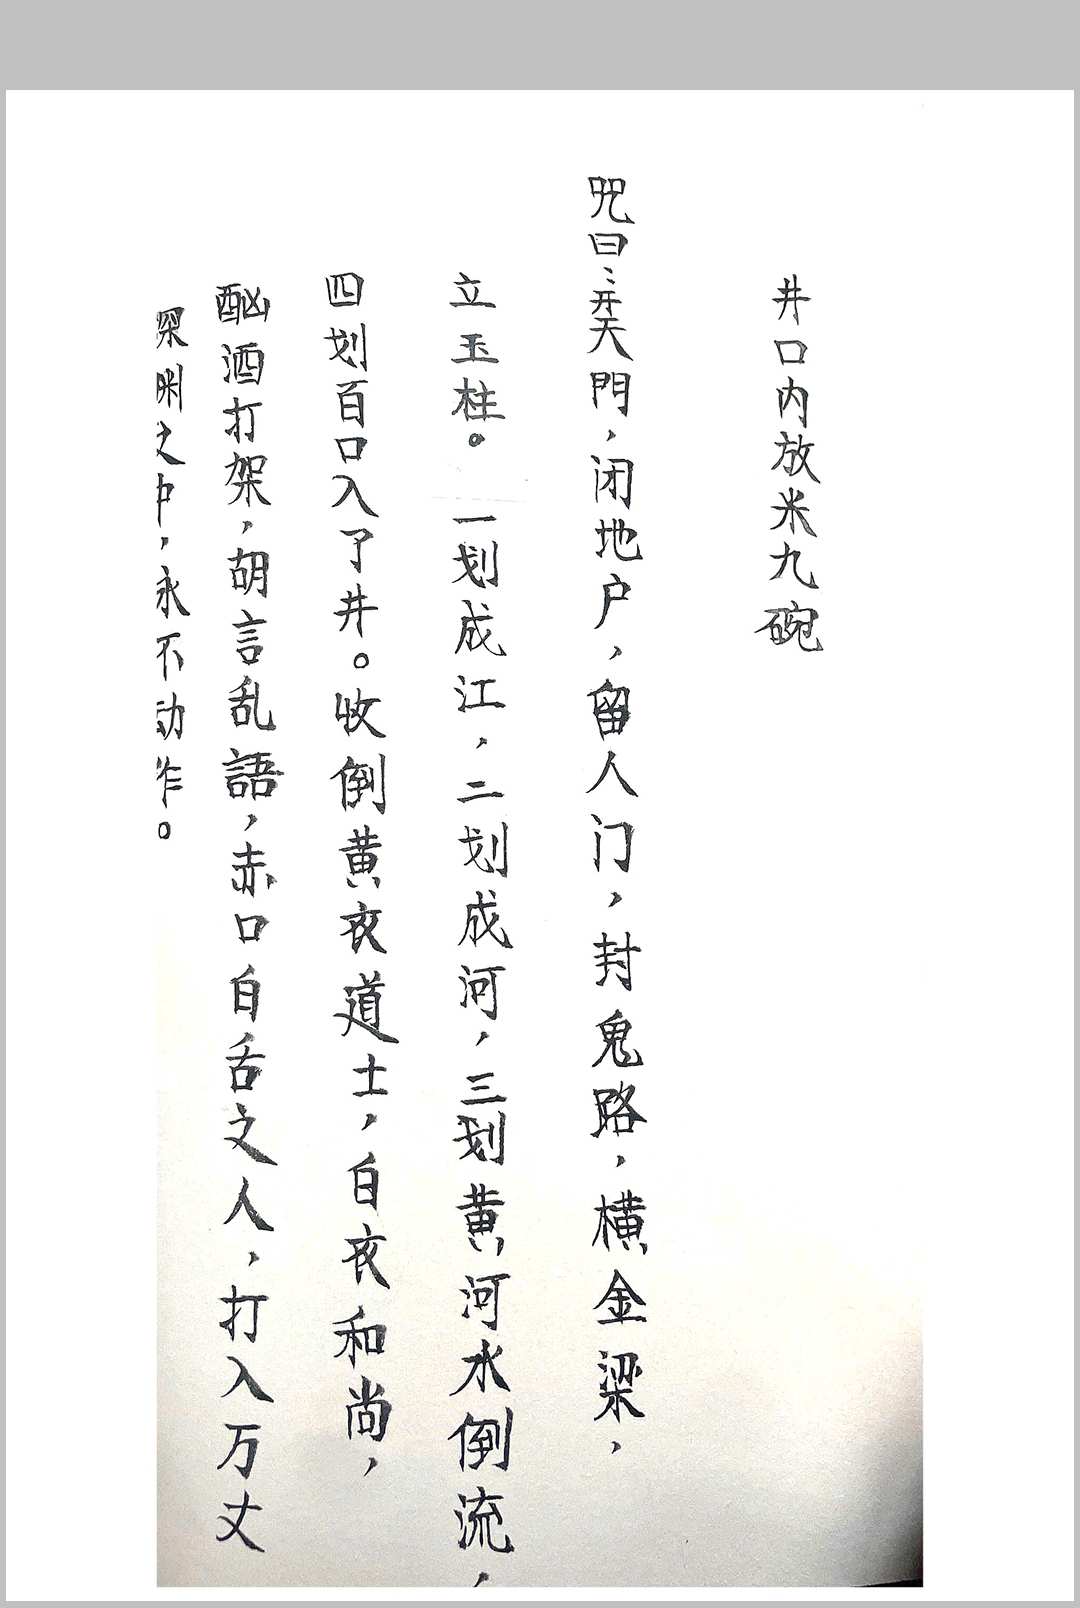 井口内放米九碗
咒曰:开天門,闭地户,留人门,封鬼路,横金梁,
立玉柱。一划成江,二划成河,三划黄河水倒流,
四划百口入了井。收倒黄衣道士,白衣和尚,
酗酒打架,胡言乱語,赤口白舌之人,打入万丈
深渊之中,永不动作。